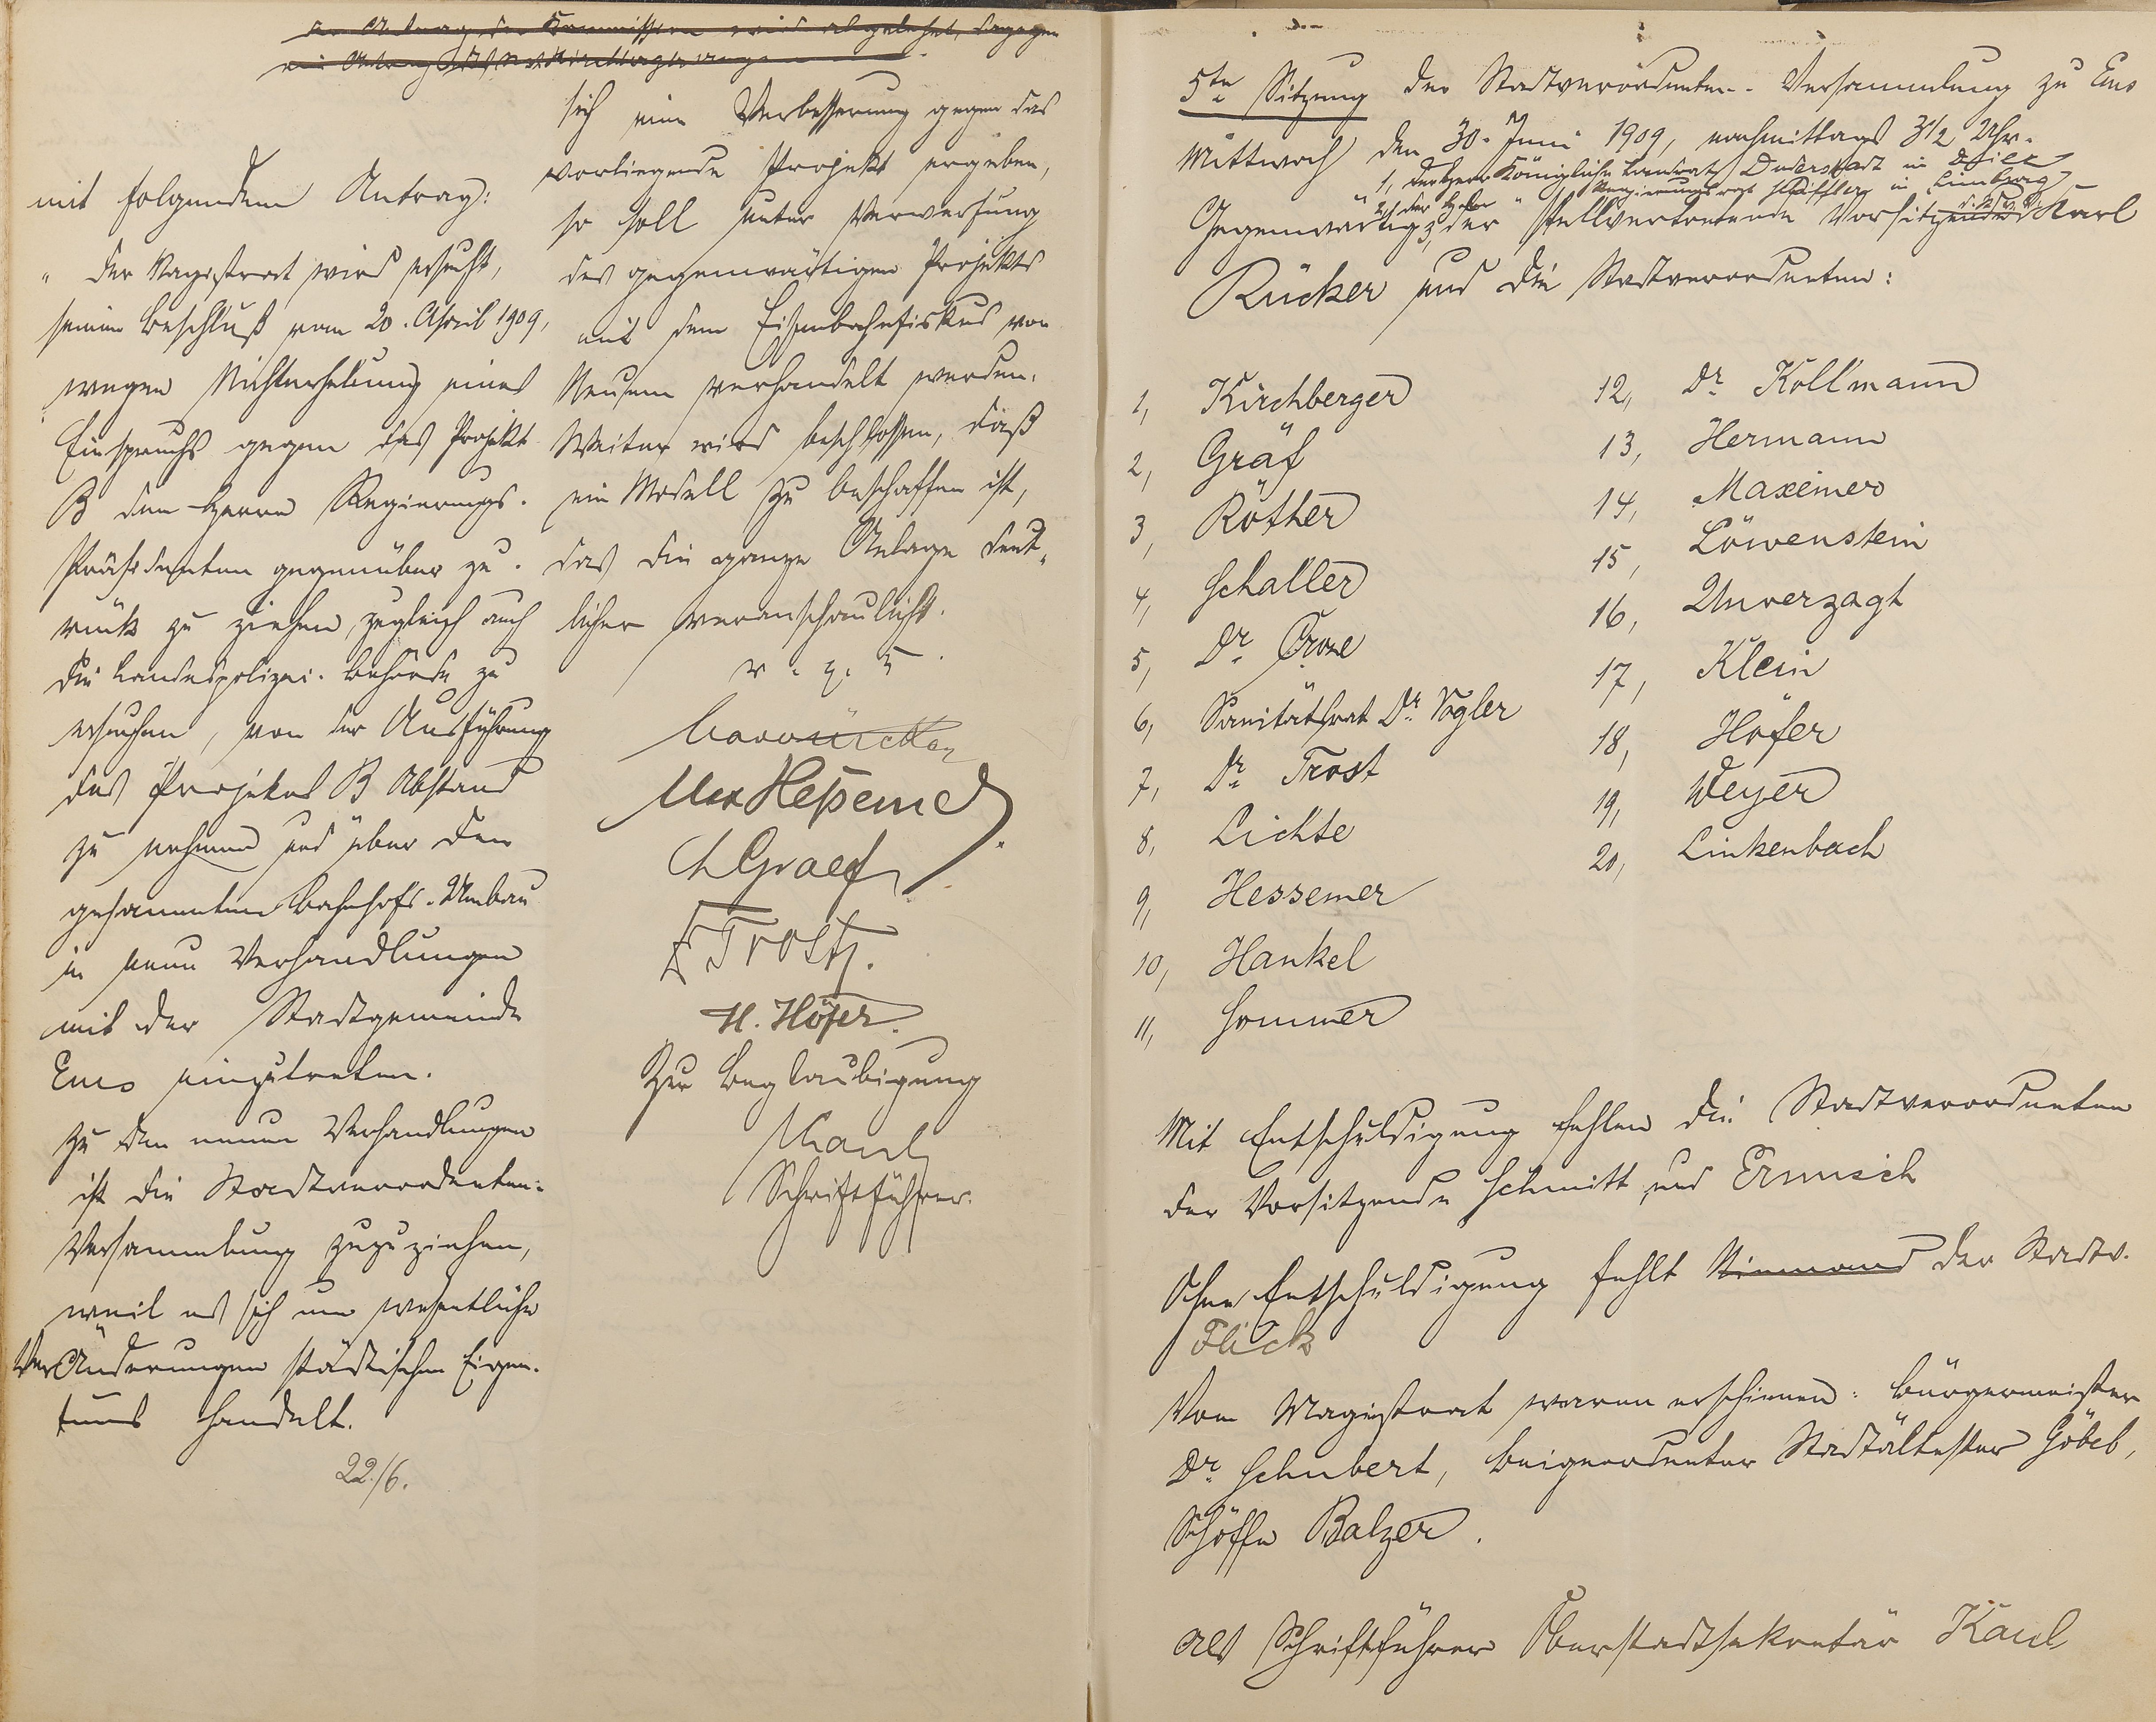 der Antrag der Kommission wird abgelehnt, dagegen
ein Antrag des
mit folgendem Antrag:
„Der Magistrat wird ersucht,
seinen Beschluß vom 20. April 1909,
wegen Nichterhebung eines
Einspruchs gegen das Projekt
B dem Herrn Regierungs-
Präsidenten gegenüber zu-
rück zu ziehen, zugleich auch
die Landespolizei-Behörde zu
ersuchen, von der Ausführung
des Projektes B Abstand
zu nehmen und über den
gesammten Bahnhofs-Umbau
in neue Verhandlungen
mit der Stadtgemeinde
Ems einzutreten.
Zu den neuen Verhandlungen
ist die Stadtverordneten-
Versammlung zuzuziehen,
weil es sich um wesentliche
Veränderungen städtischen Eigen-
tums handelt.
22./6.
sich eine Verbesserung gegen das
vorliegende Projekt ergeben,
so soll unter Verwerfung
des gegenwärtigen Projekts
mit dem Eisenbahnfiskus von
Neuem verhandelt werden.
Weiter wird beschlossen, daß
ein Modell zu beschaffen ist,
das die ganze Anlage deut-
licher veranschaulicht.
v. g. u.
Max Hessemer
Ch Graef
E Trost
H. Höfer.
Zur Beglaubigung
Kaul
Schriftführer.
5te Sitzung der Stadtverordneten-Versammlung zu Ems
Mittwoch den 30. Juni 1909, nachmittags 3 1/2 Uhr.
1, der Herr Königliche Landrat Duderstadt in Diez
2, der Herr Regierungsrat Schiffler in Limburg
Gegenwärtig: 3, der stellvertretende Vorsitzende Karl
Rücker und die Stadtverordneten:
1, Kirchberger
2, Gräf
3, Röther
4, Schaller
5, Dr. Crone
6, Sanitätsrat Dr. Vogler
7, Dr. Trost
8, Lichte
9, Hessemer
10, Hankel
11, Sommer
12, Dr. Kollmann
13, Hermann
14, Maxeiner
15, Löwenstein
16, Unverzagt
17, Klein
18, Höfer
19, Weyer
20, Linkenbach
Mit Entschuldigung fehlen die Stadtverordneten
der Vorsitzende Schmitt und Ermisch
Ohne Entschuldigung fehlt Niemand der Stadtv.
Flick
Vom Magistrat waren erschienen: Bürgermeister
Dr. Schubert, Beigeordneter Stadtältester Göbel,
Schöffe Balzer.
Als Schriftführer Oberstadtsekretär Kaul